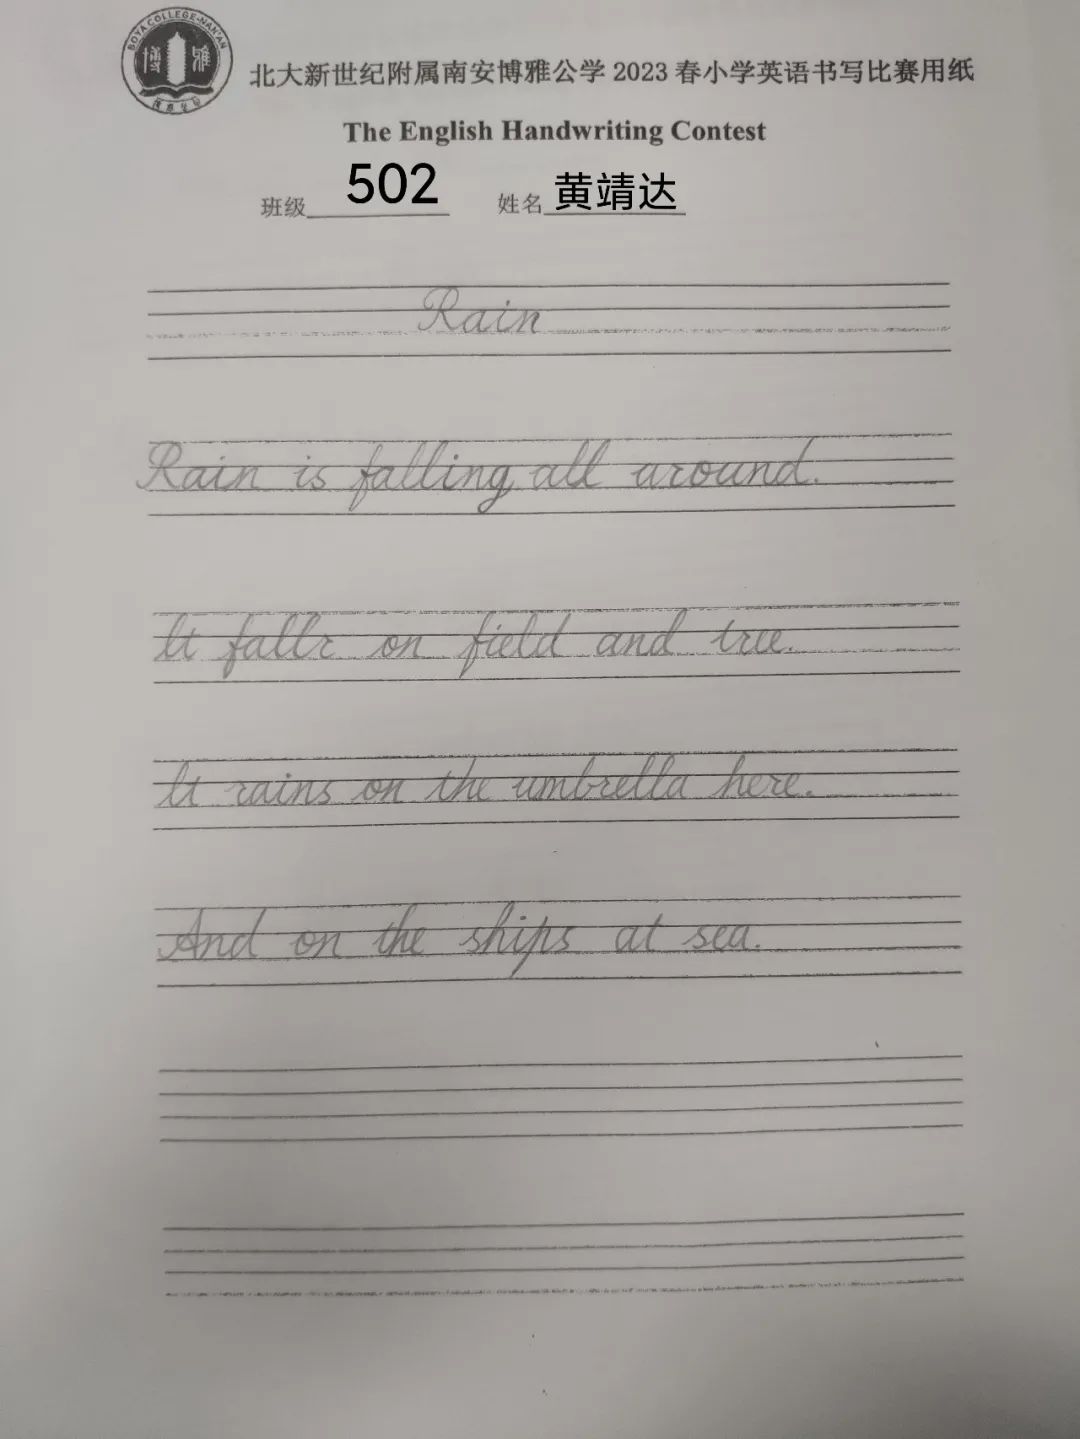 BOYA COLLEGE-NAN'AN
博雅
北大新世纪附属南安博雅公学 2023 春小学英语书写比赛用纸
The English Handwriting Contest
班级 502 姓名 黄靖达
Rain
Rain is falling all around.
It falls on field and tree.
It rains on the umbrella here.
And on the ships at sea.